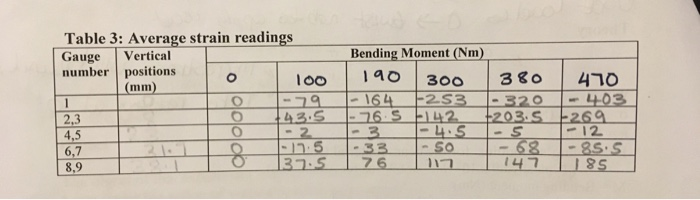 Table 3: Average strain readings
Gauge number Vertical positions (mm) Bending Moment (Nm)
0 100 190 300 380 470
1 0 -79 -164 -253 -320 -403
2,3 0 -43.5 -76.5 -142 -203.5 -269
4,5 0 -2 -3 -4.5 -5 -12
6,7 0 -17.5 -33 -50 -68 -85.5
8,9 0 37.5 76 117 147 185